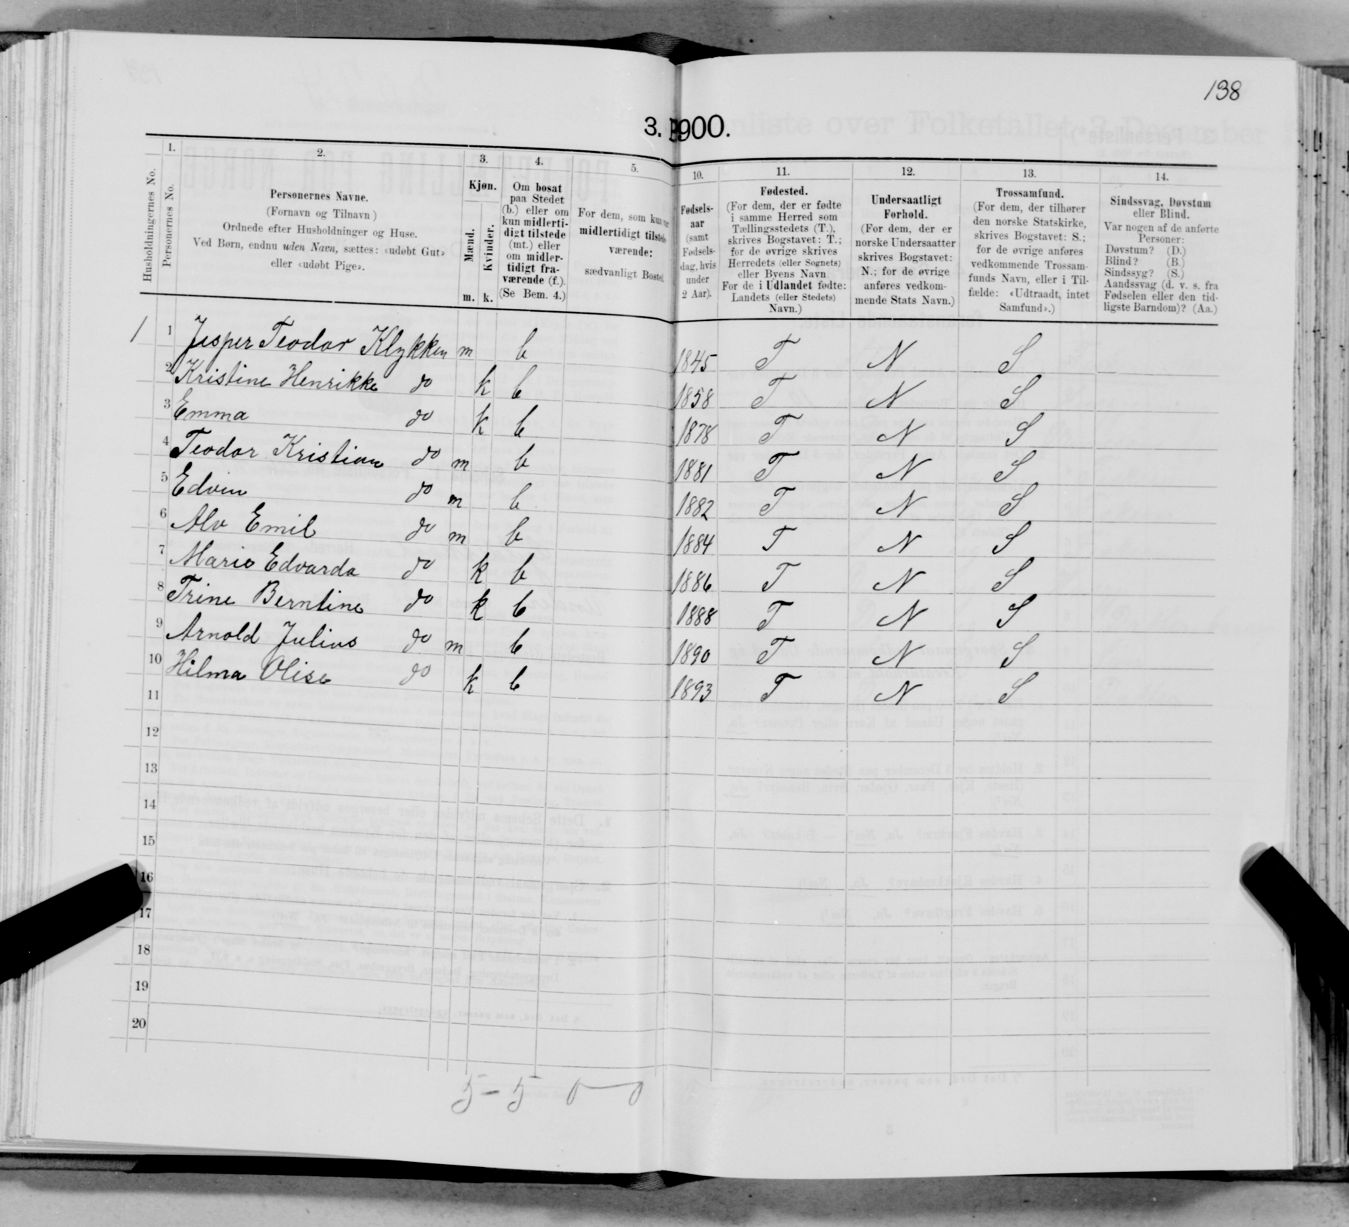 138
3. 1900.
1.
2.
3.
4.
5.
10.
11.
12.
13.
14.
Husholdningernes No.
Personernes No.
Personernes Navne.
(Fornavn og Tilnavn)
Ordnede efter Husholdninger og Huse.
Ved Børn, endnu uden Navn, sættes: «udøbt Gut»
eller «udøbt Pige».
Kjøn.
Mænd.
Kvinder.
m. k.
Om bosat
paa Stedet
(b.) eller om
kun midlerti-
digt tilstede
(mt.) eller
om midler-
tidigt fra-
værende (f.).
(Se Bem. 4.)
For dem, som kun
midlertidigt tilstede
værende:
sædvanligt Bosted.
Fødsels-
aar
(samt
Fødsels-
dag, hvis
under
2 Aar).
Fødested.
(For dem, der er fødte
i samme Herred som
Tællingsstedets (T.),
skrives Bogstavet: T.;
for de øvrige skrives
Herredets (eller Sognets)
eller Byens Navn.
For de i Udlandet fødte:
Landets (eller Stedets)
Navn.)
Undersaatligt
Forhold.
(For dem, der er
norske Undersaatter
skrives Bogstavet:
N.; for de øvrige
anføres vedkom-
mende Stats Navn.)
Trossamfund.
(For dem, der tilhører
den norske Statskirke,
skrives Bogstavet: S.;
for de øvrige anføres
vedkommende Trossam-
funds Navn, eller i Til-
fælde: «Udtraadt, intet
Samfund».)
Sindssvag, Døvstum
eller Blind.
Var nogen af de anførte
Personer:
Døvstum? (D.)
Blind? (B.)
Sindssyg? (S.)
Aandssvag (d. v. s. fra
Fødselen eller den tid-
ligste Barndom)? (Aa.)
1 1 Jesper Teodor Klykken m b 1845 T N S
2 Kristine Henrikke do k b 1858 T N S
3 Emma do k b 1878 T N S
4 Teodor Kristian do m b 1881 T N S
5 Edvin do m b 1882 T N S
6 Alv Emil do m b 1884 T N S
7 Marie Edvarda do k b 1886 T N S
8 Trine Berntine do k b 1888 T N S
9 Arnold Julius do m b 1890 T N S
10 Hilma Olise do k b 1893 T N S
11
12
13
14
15
16
17
18
19
20
5 - 5 0 0